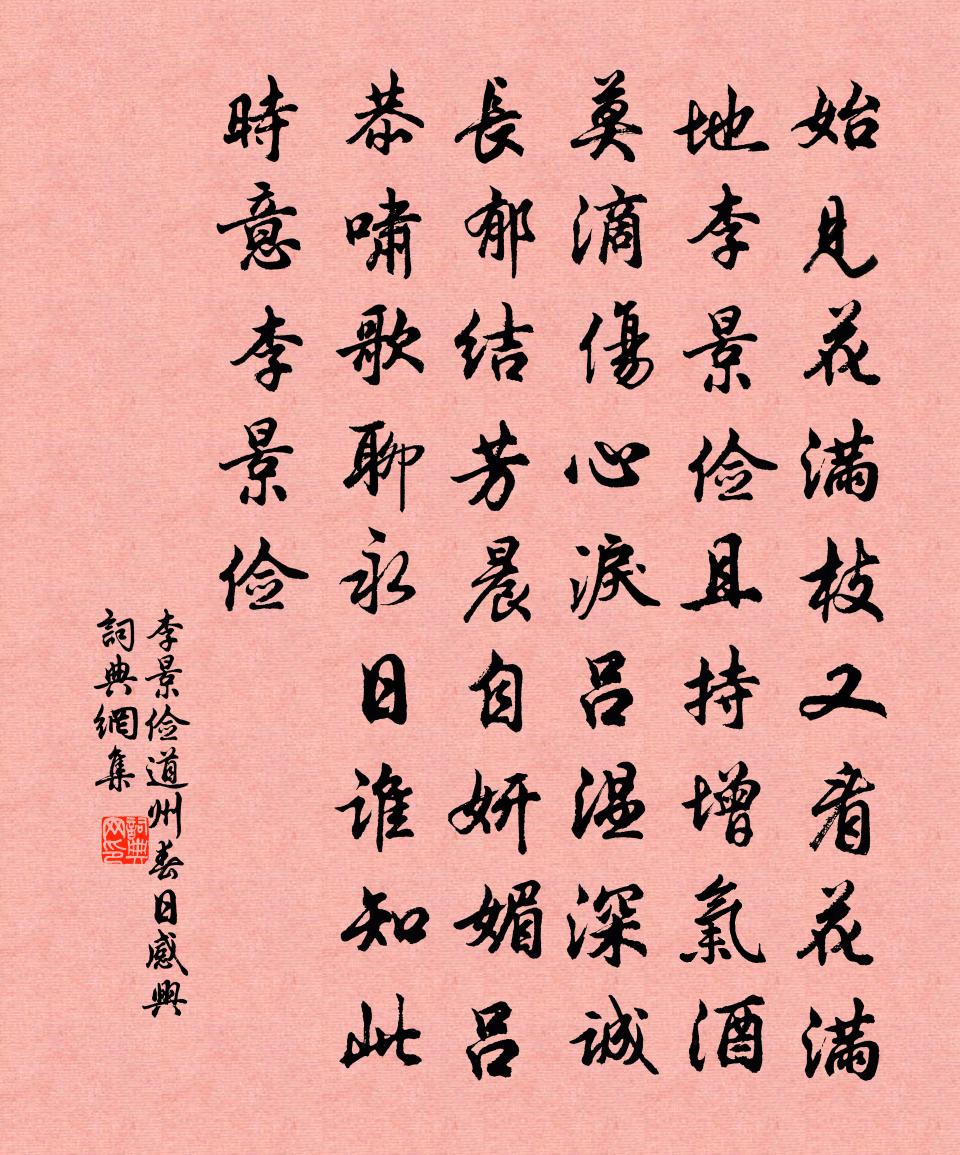 始見花滿枝又看花滿
地李景俭且持增氣酒
莫滴傷心淚呂温深誠
長郁结芳晨自妍媚呂
恭嘯歌聊永日谁知此
時意李景俭
李景俭道州春日感興
詞典網集
詞典網印